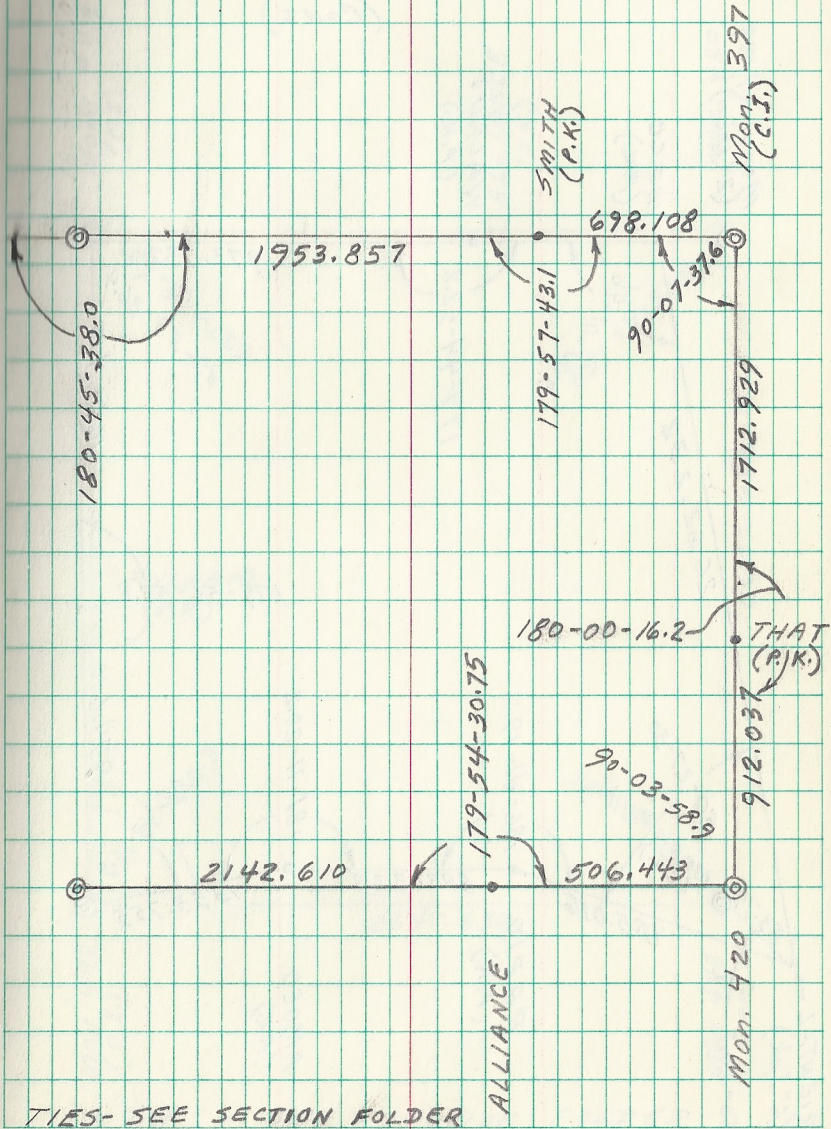 Mon. 397
(C.I.)
SMITH
(P.K.)
698.108
1953.857
90-07-37.6
179-57-43.1
180-45-38.0
1712.929
180-00-16.2
THAT
(P.K.)
912.037
179-54-30.75
90-03-58.9
2142.610
506.443
ALLIANCE
Mon. 420
TIES- SEE SECTION FOLDER